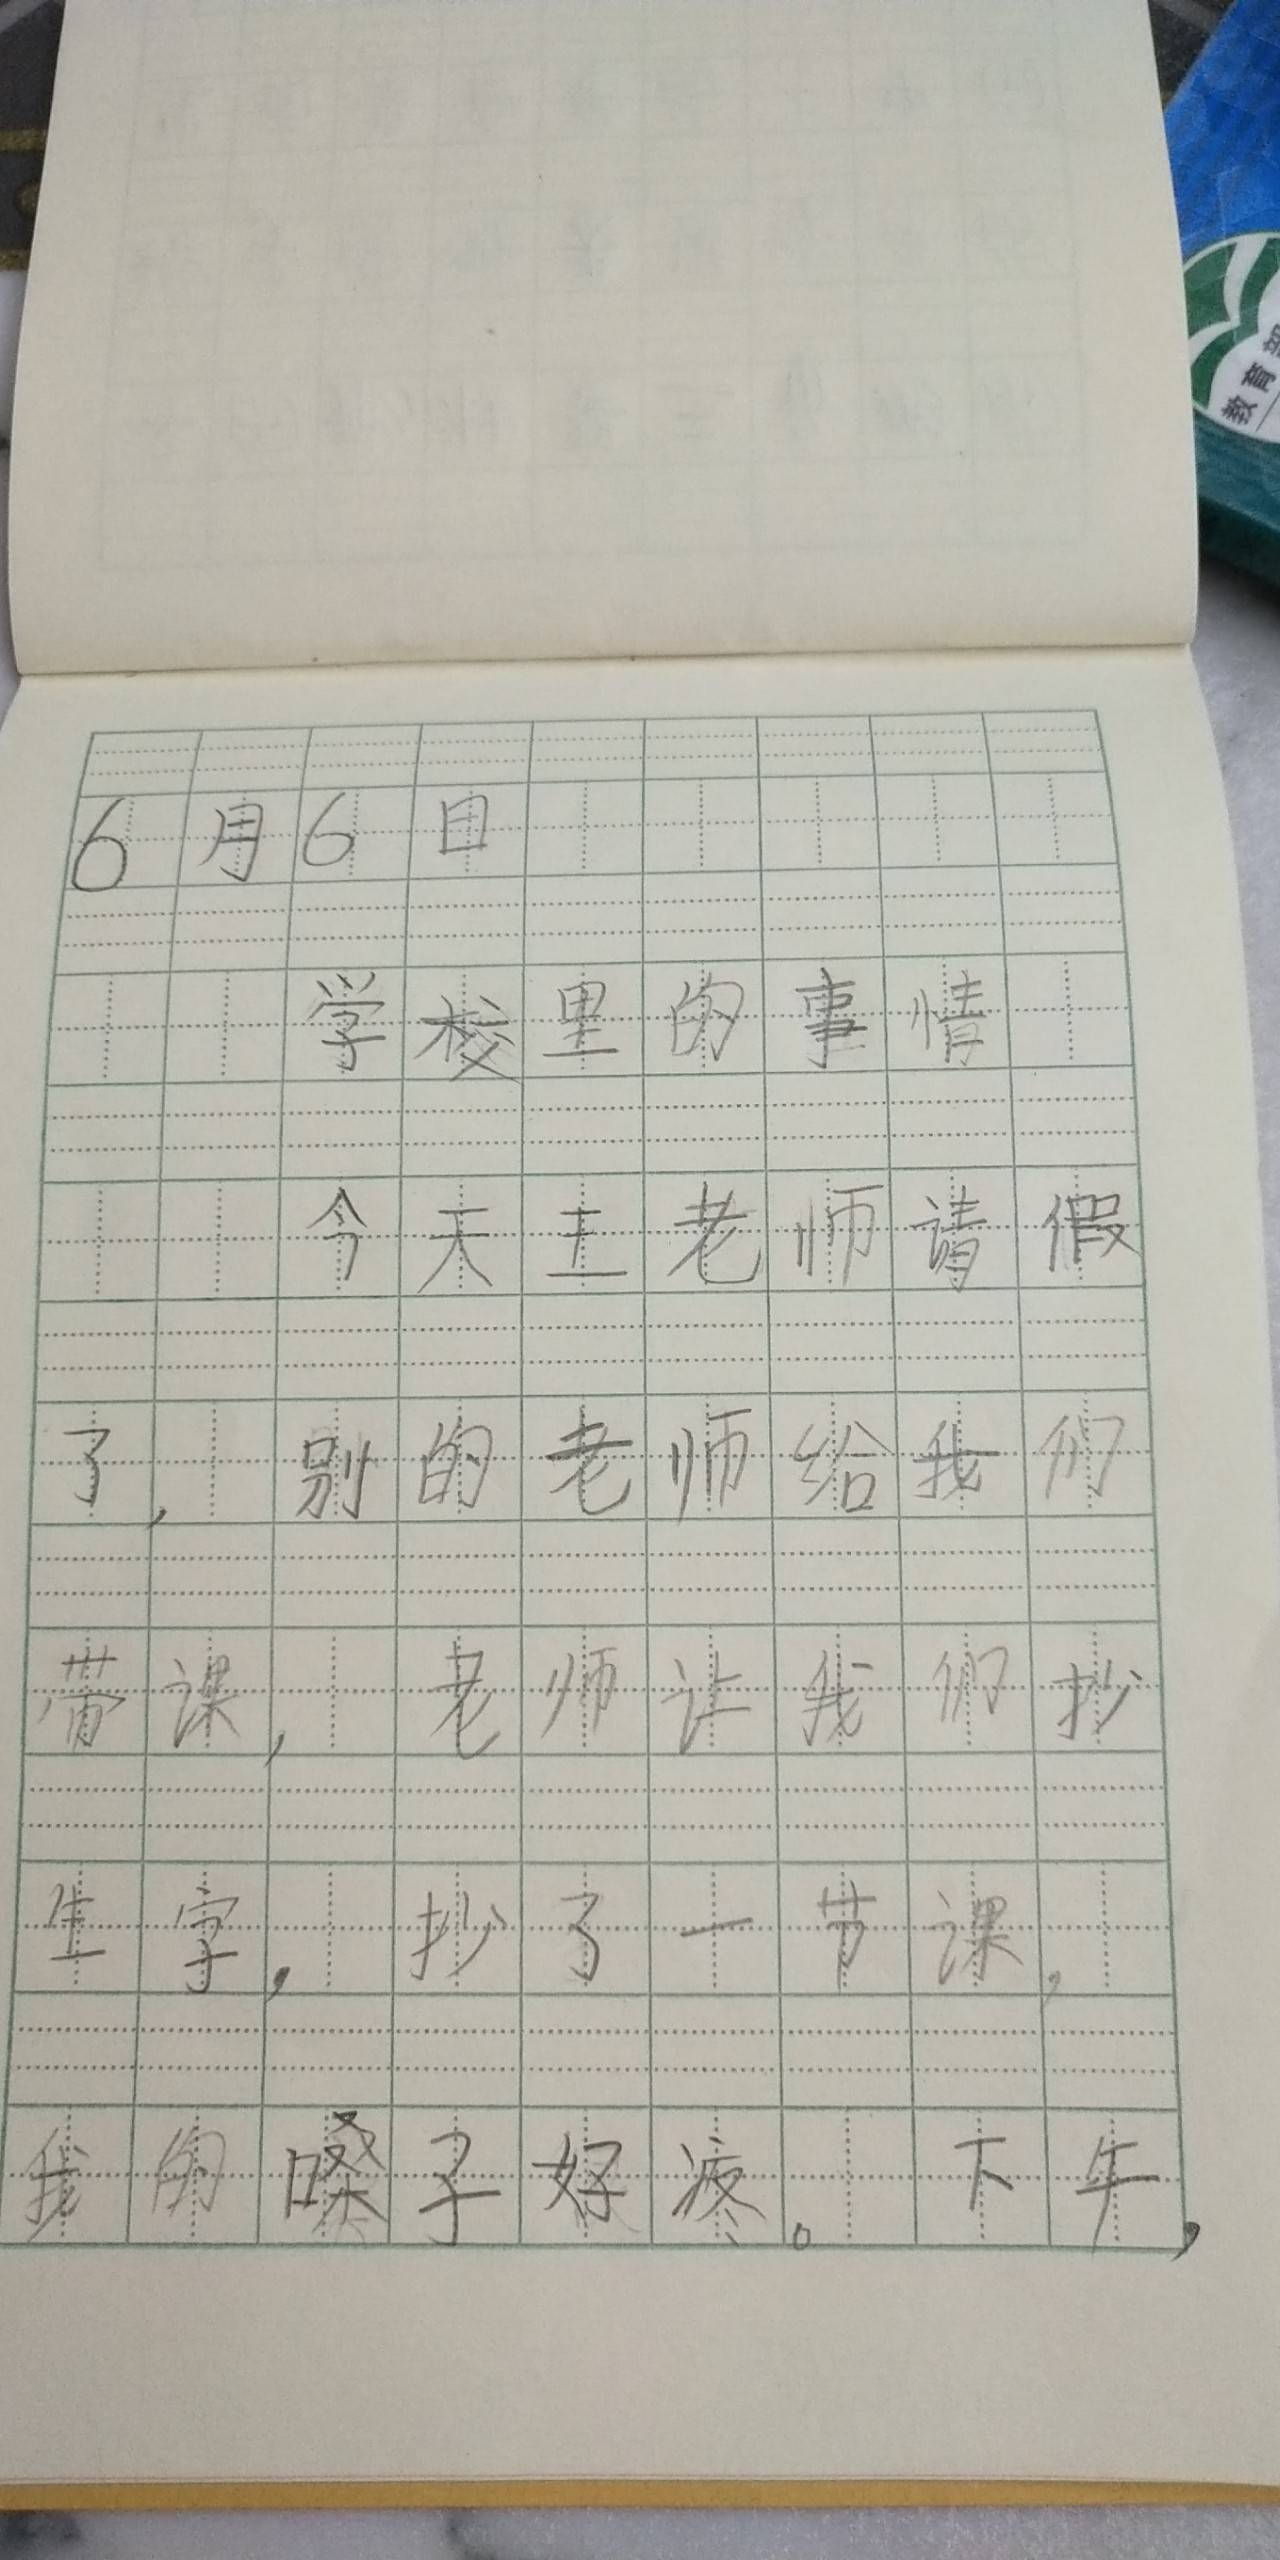 6月6日
学校里的事情
今天王老师请假
了，别的老师给我们
带课，老师让我们抄
生字，抄了一节课，
我的嗓子好疼。下午，
教育部